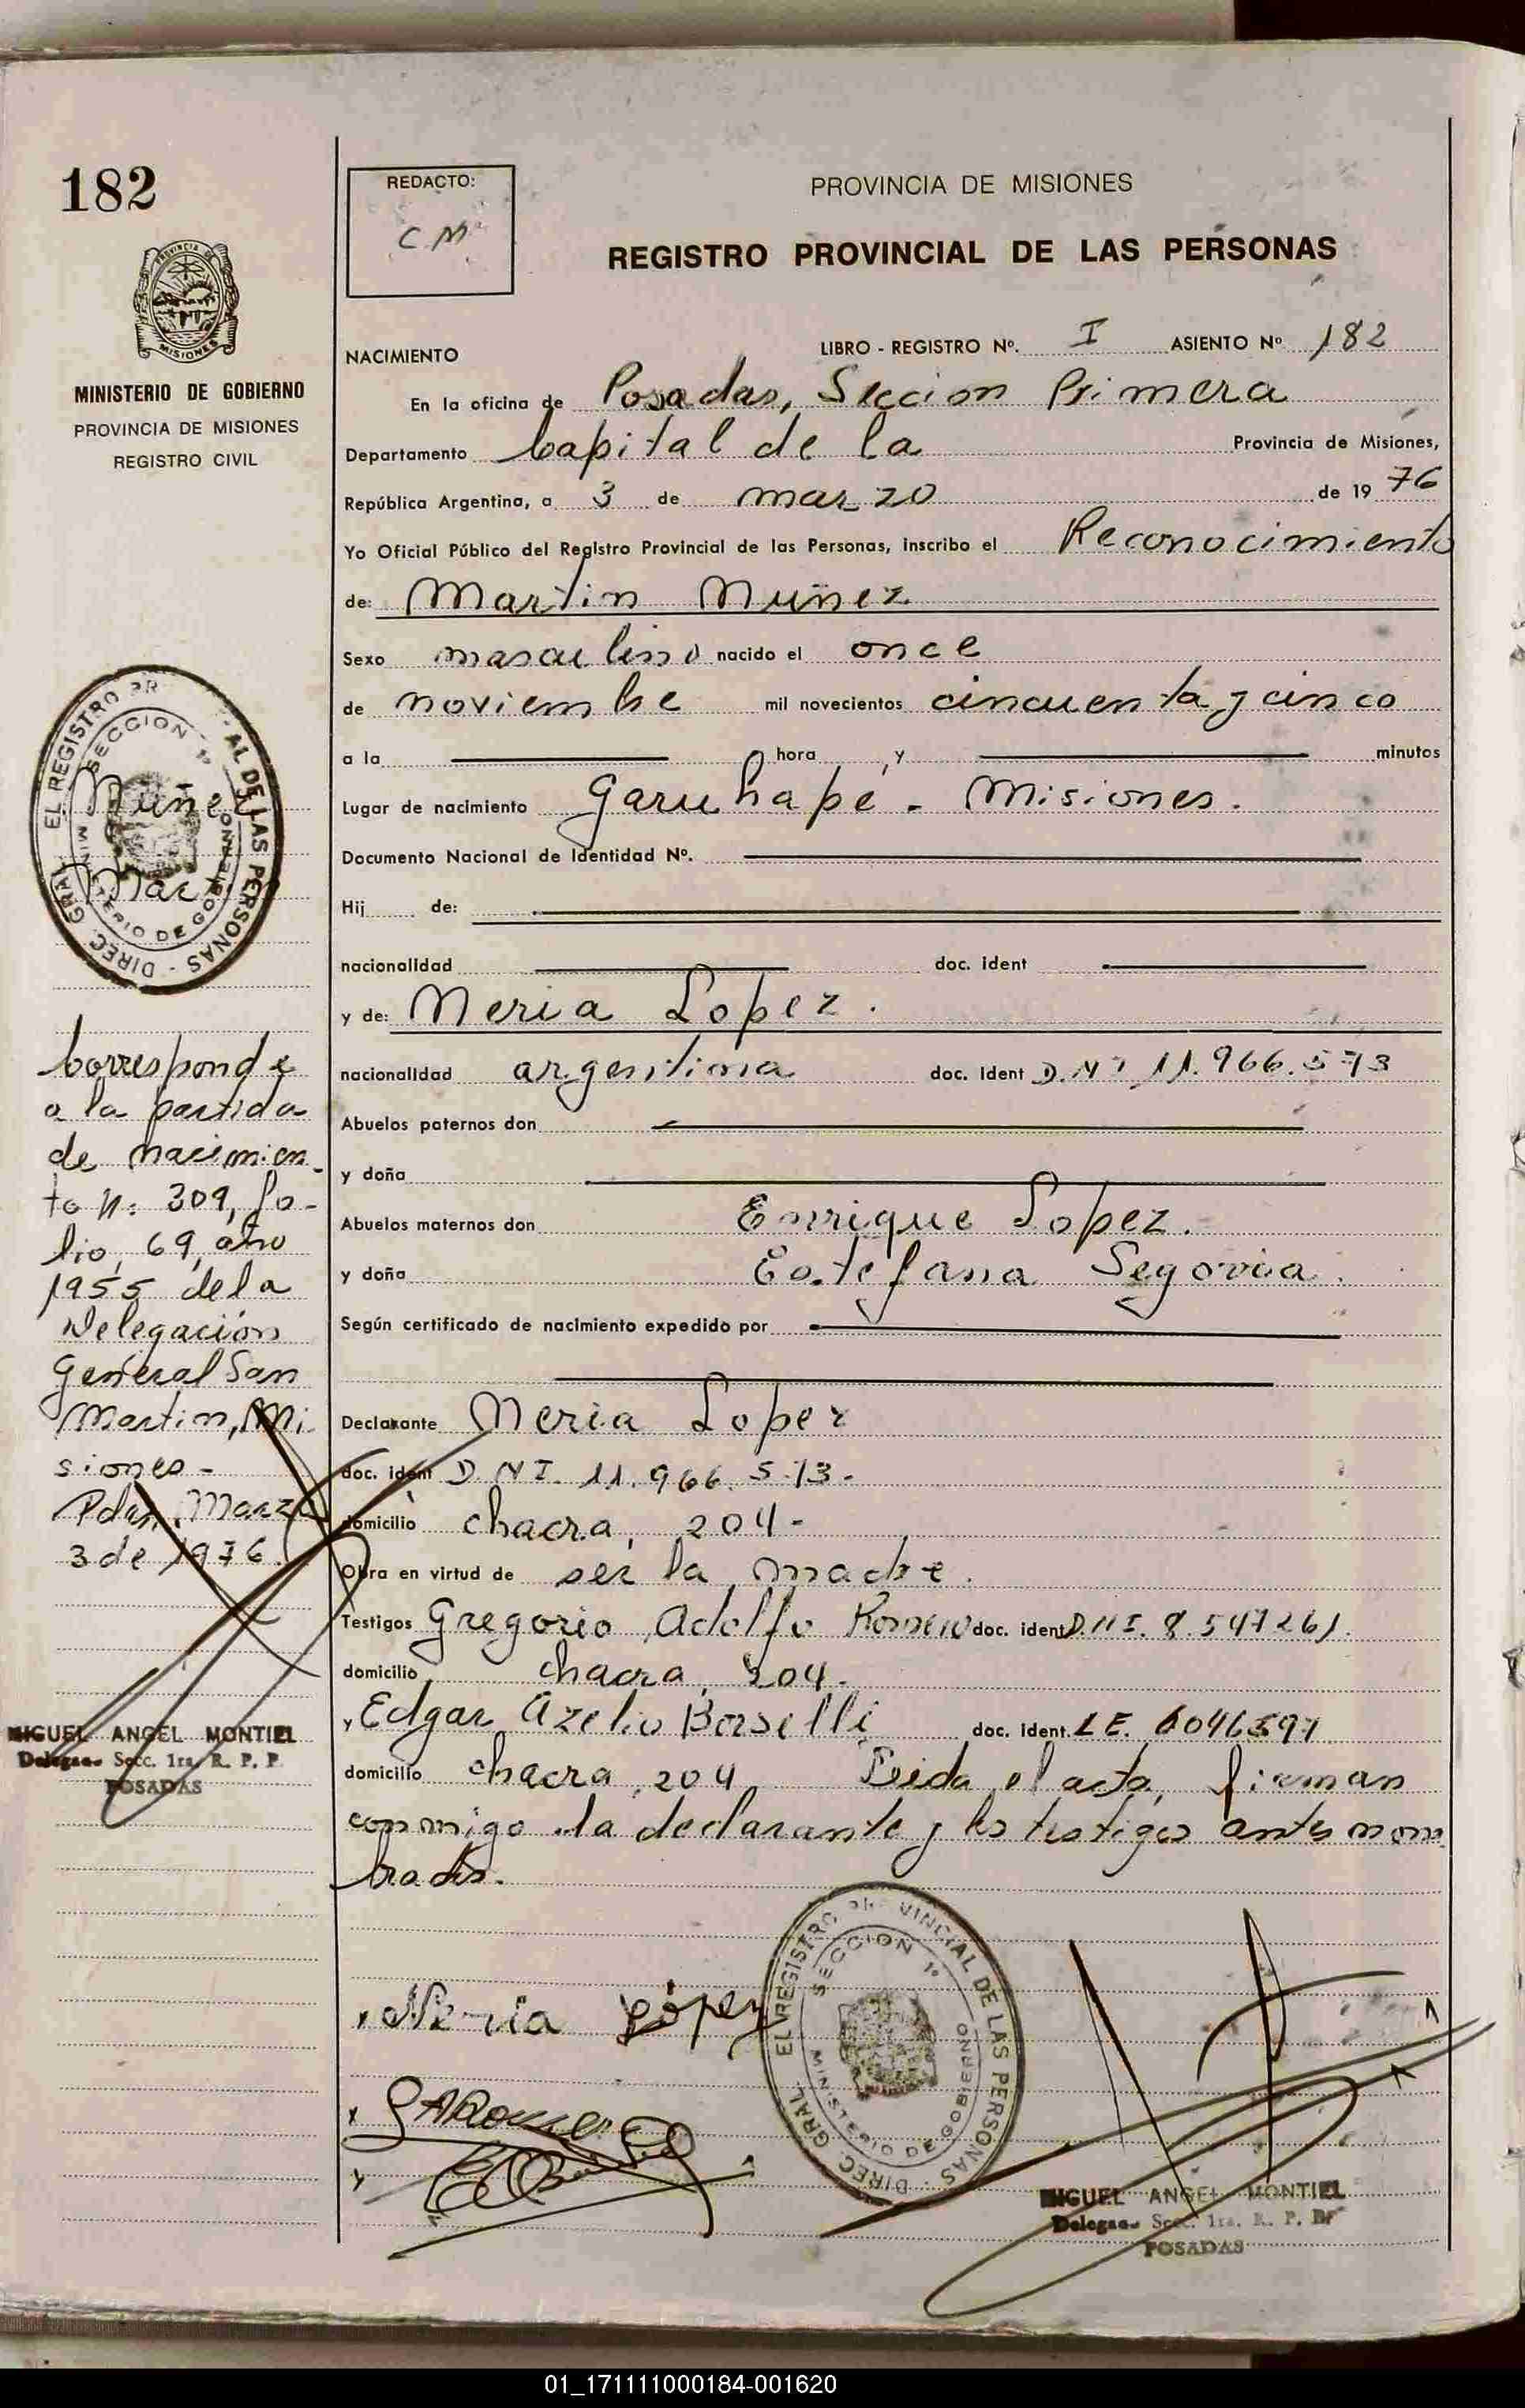 182
REDACTO:
CM
PROVINCIA DE MISIONES
REGISTRO PROVINCIAL DE LAS PERSONAS
PROVINCIA DE
MISIONES
MINISTERIO DE GOBIERNO
PROVINCIA DE MISIONES
REGISTRO CIVIL
NACIMIENTO LIBRO - REGISTRO Nº. I ASIENTO Nº 182
En la oficina de Posadas, Seccion Primera
Departamento Capital de la Provincia de Misiones,
República Argentina, a 3 de marzo de 19 76
Yo Oficial Público del Registro Provincial de las Personas, inscribo el Reconocimiento
de: Martin Nuñez
Sexo masculino nacido el once
de noviembre mil novecientos cincuenta y cinco
a la hora y minutos
Lugar de nacimiento Garuhapé - Misiones.
Documento Nacional de Identidad Nº.
Hij de:
nacionalidad doc. ident
y de: Neria Lopez.
nacionalidad argentina doc. Ident D.N.I 11.966.573
Abuelos paternos don
y doña
Abuelos maternos don Enrique Lopez.
y doña Estefana Segovia.
Según certificado de nacimiento expedido por
Declarante Neria Lopez
doc. ident D.N.I. 11.966.573-
domicilio chacra, 204-
Obra en virtud de ser la madre.
Testigos Gregorio Adolfo Romero doc. ident D.N.I. 8.547261.
domicilio chacra, 204.
y Edgar Azelio Borselli doc. ident. L E. 6046597
domicilio chacra, 204 Leida el acta, firman
conmigo la declarante y los testigos antes nom
brados.
Nuñez
Mar
EL REGISTRO PR AL DE LAS PERSONAS - DIREC. GRAL
SECCION 1º
MINISTERIO DE GOBIERNO
Corresponde
a la partida
de nacimien-
to Nº 309, fo-
lio, 69, año
1955 de la
Delegación
General San
Martin, Mi
siones -
Pdas, Marzo
3 de 1976.
MIGUEL ANGEL MONTIEL
Delegado Secc. 1ra. R. P. P.
POSADAS
Neria López
GARomero
EL REGISTRO PROVINCIAL DE LAS PERSONAS - DIREC. GRAL
SECCION 1º
MINISTERIO DE GOBIERNO
MIGUEL ANGEL MONTIEL
Delegado Secc. 1ra. R. P. P.
POSADAS
01_171111000184-001620